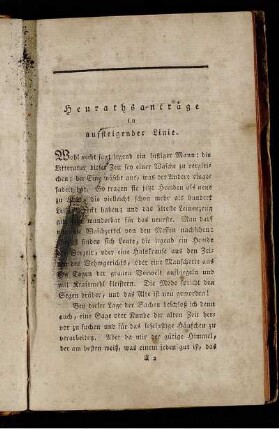 Heurathsanträge
in
aufsteigender Linie.
Wohl recht sagt irgend ein lustiger Mann: die
Litteratur dieser Zeit sey einer Wäsche zu verglei-
chen; der Eine wäscht aus, was der Andre einge-
So tragen sie jetzt Hemden als neu
die vielleicht schon mehr als hundert
haben; und das älteste Leinenzeug
wunderbar für das neueste. Man darf
Waschzettel von den Messen nachsehen:
finden sich Leute, die irgend ein Hemde
oder eine Halskrause aus den Zei-
Vehmgerichts, oder eine Manschette aus
Tagen der grauen Vorwelt aufbiegeln und
mit Kraftmehl kleistern. Die Mode spricht den
Segen drüber, und das Alte ist neu geworden!
Bey dieser Lage der Sachen beschloß ich denn
auch, eine Sage oder Kunde der alten Zeit hervor
zu suchen und für das leselustige Häuschen zu
verarbeiten. Aber da mir der gütige Himmel,
der am besten weiß, was einem jeden gut ist, das
A 2